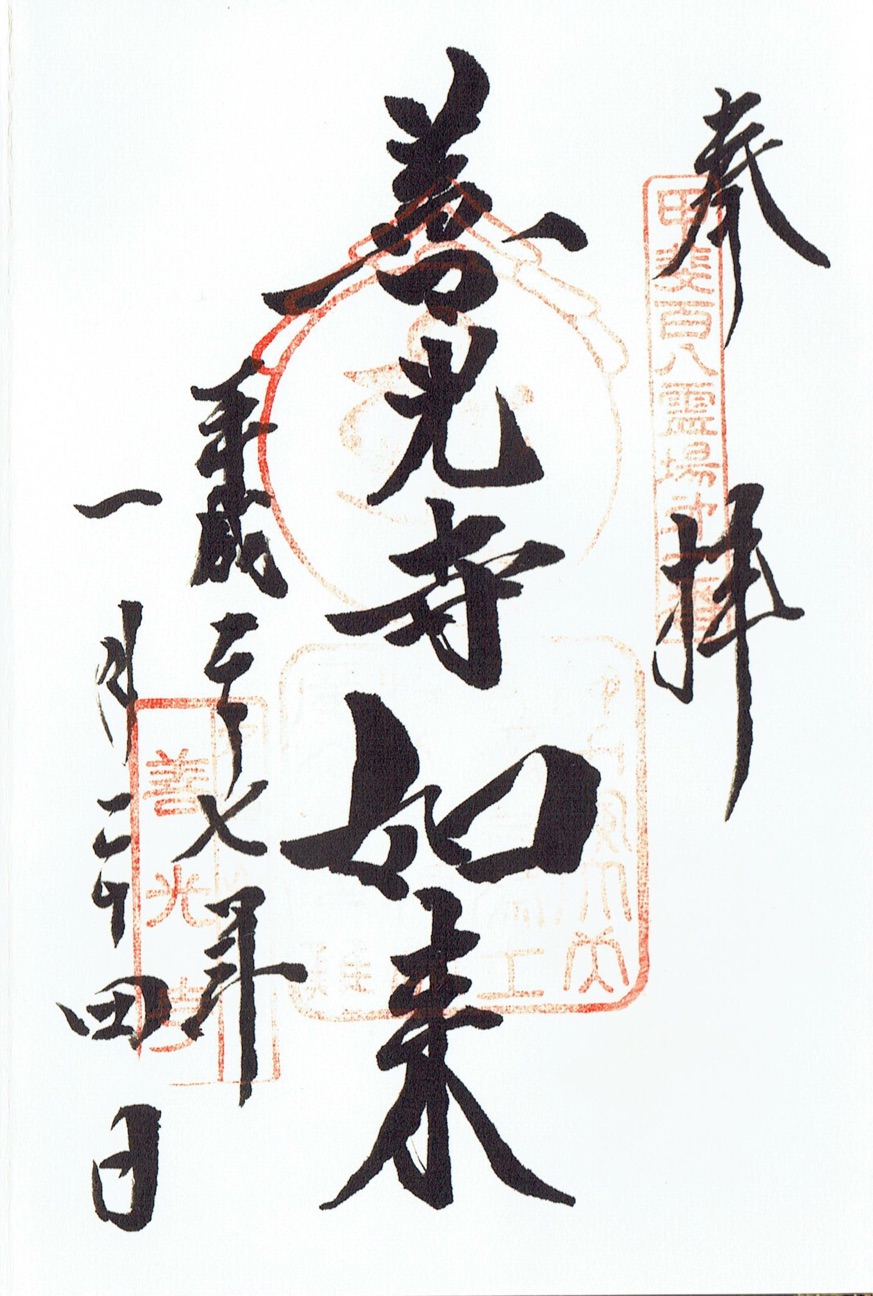 奉拝
甲斐百八霊場第一番
善光寺如来
平成二十七年
一月二十四日
善光寺